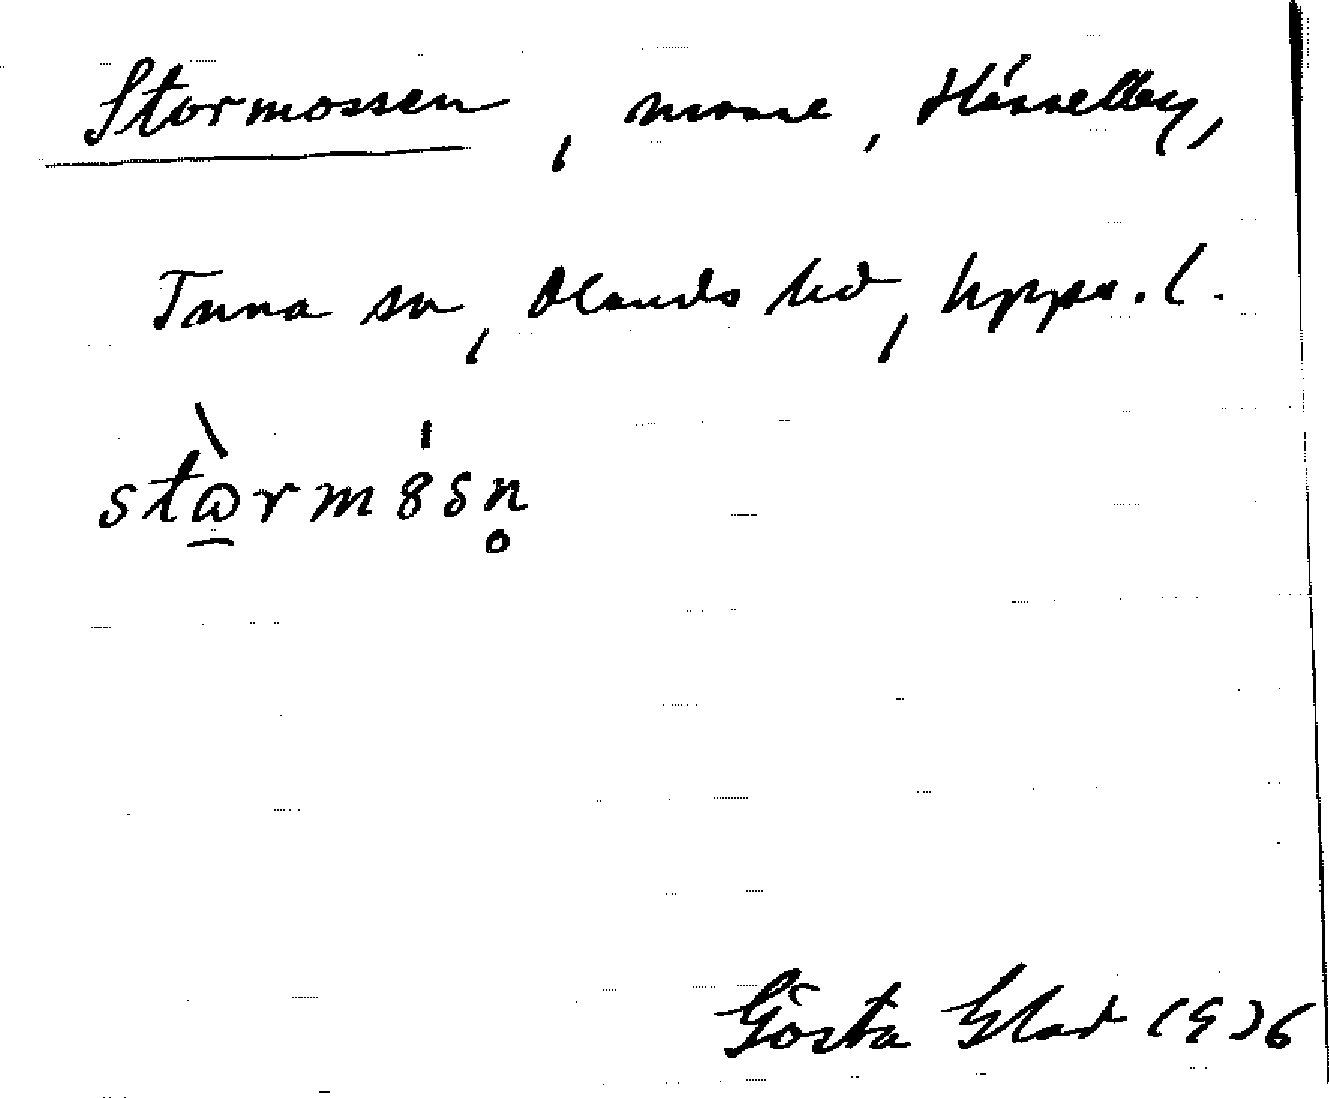 Stormossen, mosse, Hässelby,
Tuna sn, Olands hd, Upps. l.
stɷ̀rm8sn̥
Gösta Glad 1936